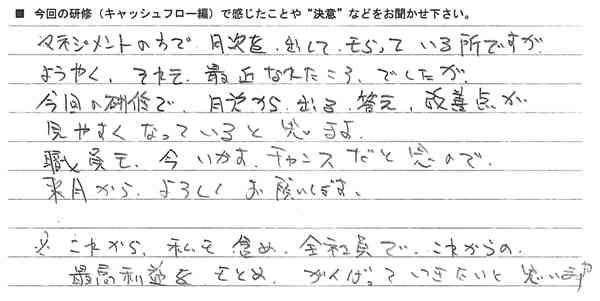 ■ 今回の研修（キャッシュフロー編）で感じたことや“決意”などをお聞かせ下さい。
マネジメントの方で 月次を 出して もらっている所ですが
ようやく、それも 最近 なれたころ でしたが、
今回の研修で、月次から 出る 答え、改善点が
見やすく なっていると 思います。
職員も、今 いかす、チャンス だと 思うので、
来月から、よろしく お願いします。
※ これから、私も 含め、全社員で、これからの
最高利益を もとめ、がんばっていきたいと思います